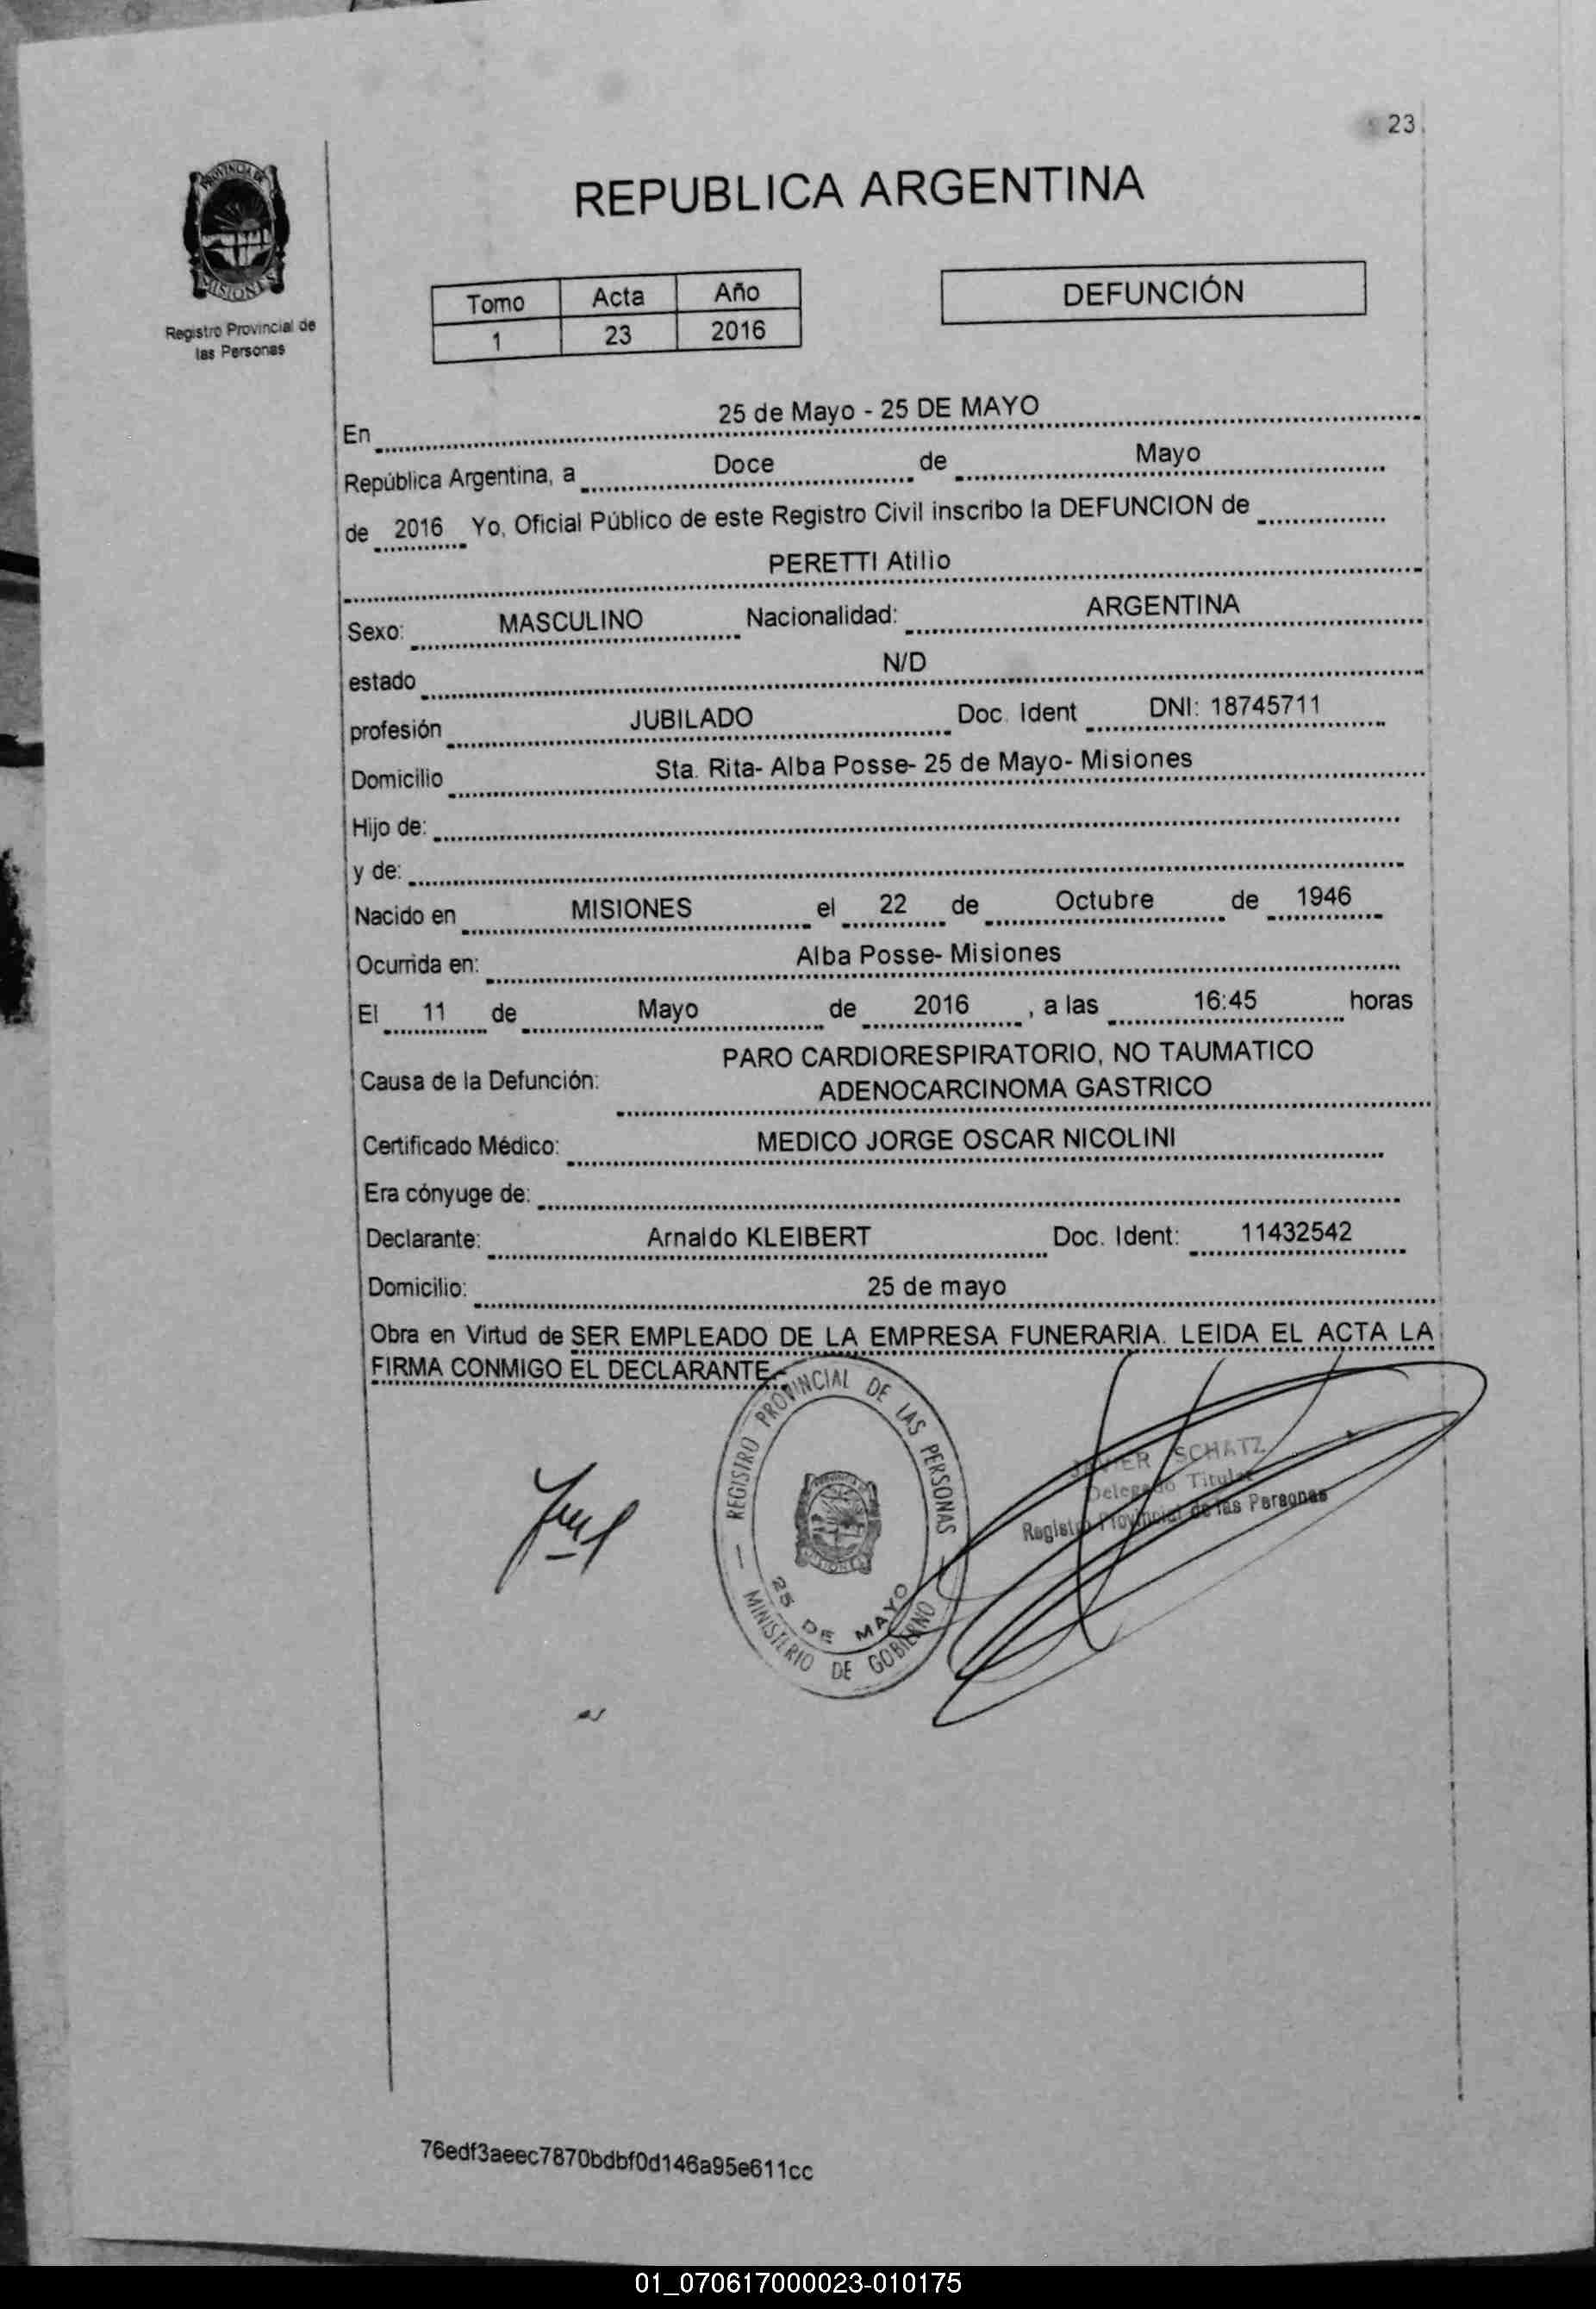 23
PROVINCIA DE
MISIONES
Registro Provincial de
las Personas
REPUBLICA ARGENTINA
Tomo Acta Año
1 23 2016
DEFUNCIÓN
En 25 de Mayo - 25 DE MAYO
República Argentina, a Doce de Mayo
de 2016 Yo, Oficial Público de este Registro Civil inscribo la DEFUNCION de
PERETTI Atilio
Sexo: MASCULINO Nacionalidad: ARGENTINA
estado N/D
profesión JUBILADO Doc. Ident DNI: 18745711
Domicilio Sta. Rita- Alba Posse- 25 de Mayo- Misiones
Hijo de:
y de:
Nacido en MISIONES el 22 de Octubre de 1946
Ocurrida en: Alba Posse- Misiones
El 11 de Mayo de 2016 , a las 16:45 horas
PARO CARDIORESPIRATORIO, NO TAUMATICO
Causa de la Defunción:
ADENOCARCINOMA GASTRICO
Certificado Médico: MEDICO JORGE OSCAR NICOLINI
Era cónyuge de:
Declarante: Arnaldo KLEIBERT Doc. Ident: 11432542
Domicilio: 25 de mayo
Obra en Virtud de SER EMPLEADO DE LA EMPRESA FUNERARIA. LEIDA EL ACTA LA
FIRMA CONMIGO EL DECLARANTE.-
REGISTRO PROVINCIAL DE LAS PERSONAS
25 DE MAYO
MINISTERIO DE GOBIERNO
JAVIER SCHATZ
Delegado Titular
Registro Provincial de las Personas
76edf3aeec7870bdbf0d146a95e611cc
01_070617000023-010175